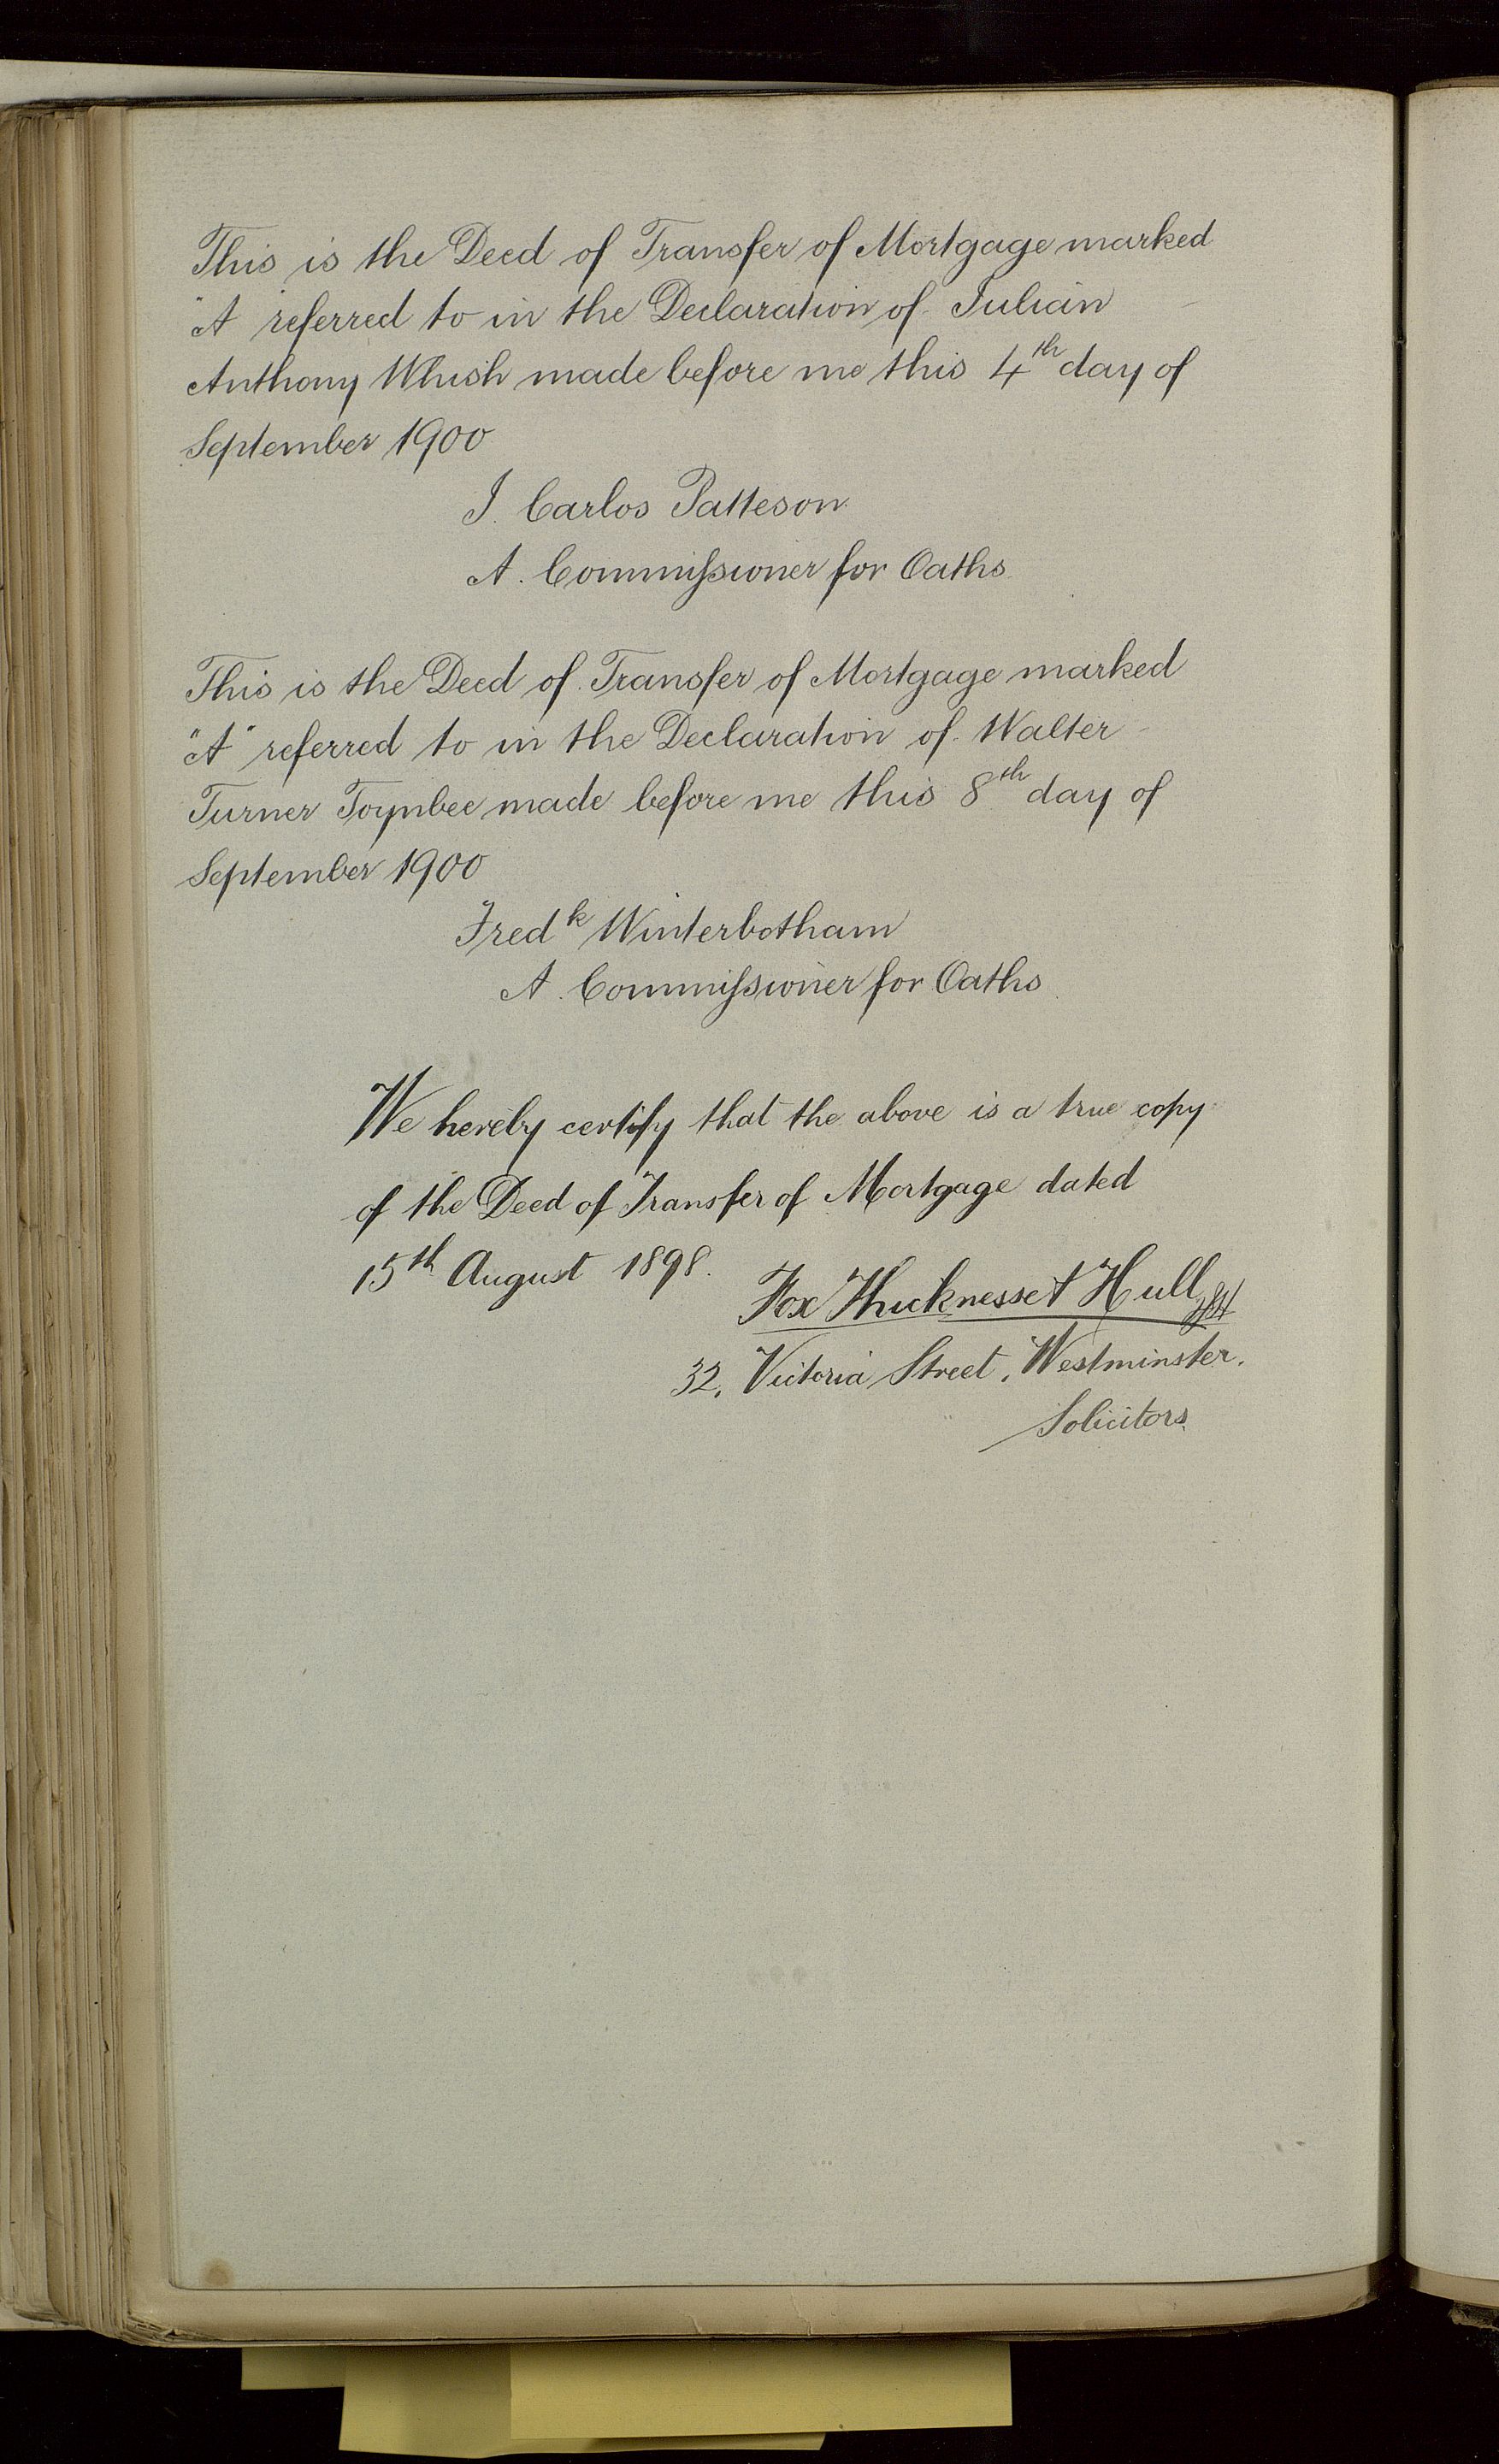 This is the Deed of Transfer of Mortgage marked
"A" referred to in the Declaration of Julian
Anthony Whish made before me this 4th day of
September 1900
J. Carlos Patteson
A. Commissioner for Oaths
This is the Deed of Transfer of Mortgage marked
"A" referred to in the Declaration of Walter
Turner Toynbee made before me this 8th day of
September 1900
Fredk Winterbotham
A. Commissioner for Oaths
We hereby certify that the above is a true copy
of the Deed of Transfer of Mortgage dated
15th August 1898.
Fox Thicknesse & Hull
32, Victoria Street, Westminster.
Solicitors.